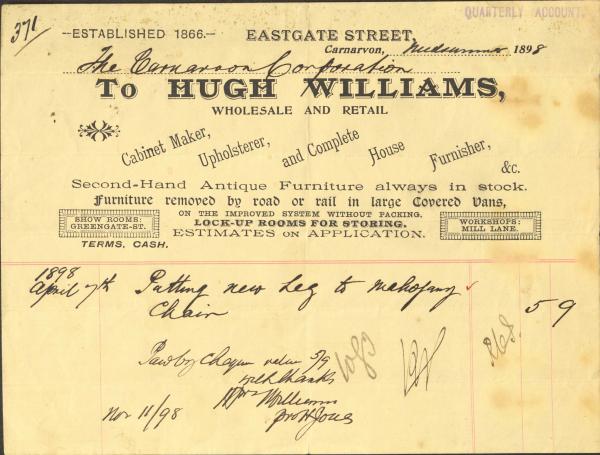 371
QUARTERLY ACCOUNT.
—ESTABLISHED 1866.— EASTGATE STREET,
Carnarvon, Midsummer 1898
The Carnarvon Corporation
To HUGH WILLIAMS,
WHOLESALE AND RETAIL
Cabinet Maker, Upholsterer, and Complete House Furnisher, &c.
Second-Hand Antique Furniture always in stock.
Furniture removed by road or rail in large Covered Vans,
SHOW ROOMS: GREENGATE-ST.
ON THE IMPROVED SYSTEM WITHOUT PACKING.
LOCK-UP ROOMS FOR STORING.
WORKSHOPS: MILL LANE.
TERMS, CASH.
ESTIMATES ON APPLICATION.
1898
April 7th Putting new Leg to Mahogany 5 9
Chair
Paid by Cheque value 5/9
with thanks
Williams
pro H Jones
Nov 11/98